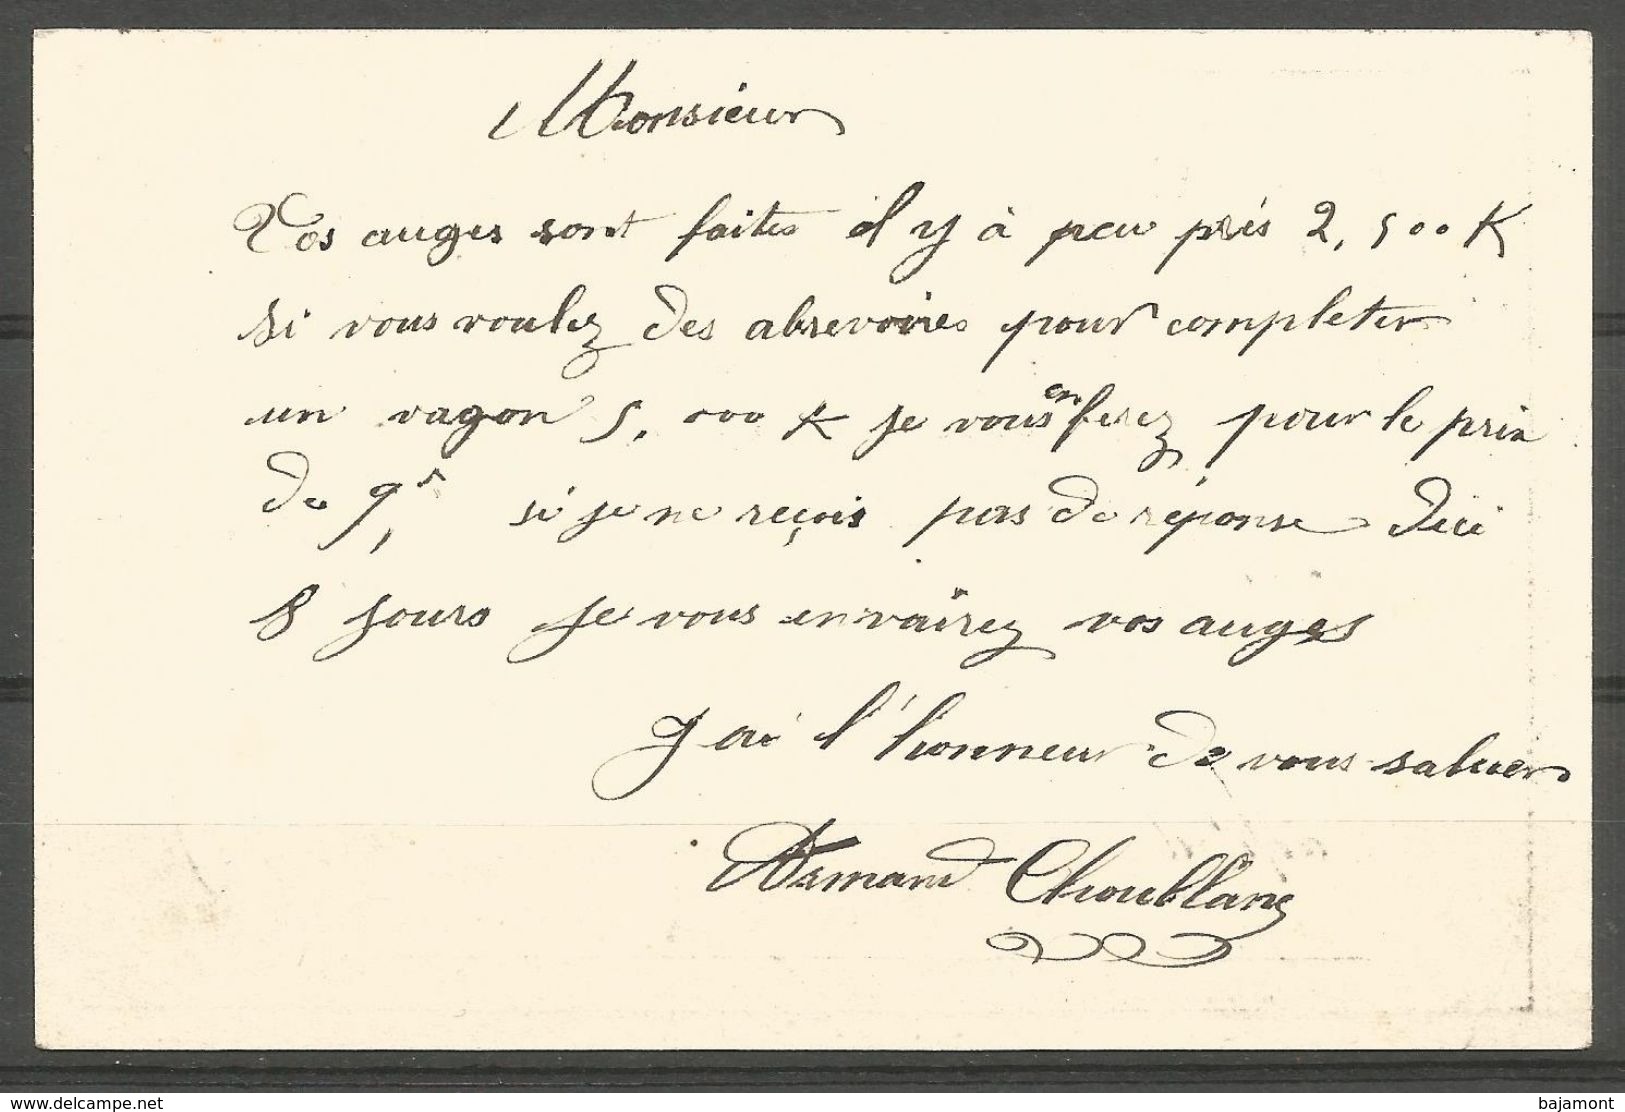 Monsieur
Vos auges sont faites il y à peu prés 2,500 K
si vous voulez des absevoires pour completer
un vagon 5,000 K je vous en ferez pour le prix
de 9,f si je ne reçois pas de réponse dici
8 jours je vous envairez vos auges
J ai l'honneur de vous saluer
Armand Choublanc
www.delcampe.net
bajamont